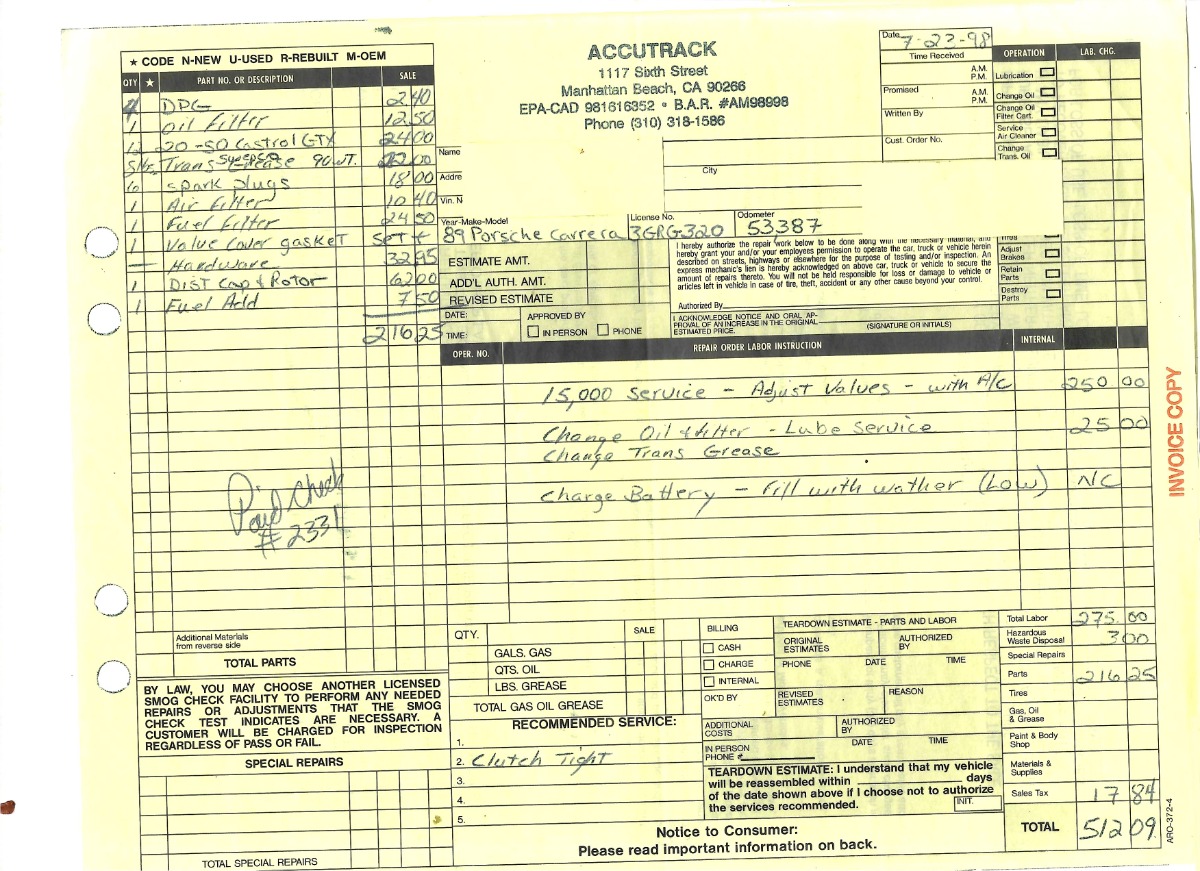 ★ CODE N-NEW U-USED R-REBUILT M-OEM
QTY ★ PART NO. OR DESCRIPTION SALE
DPC 2.40
1 Oil Filter 12 50
12 20-50 Castrol GTX 24 00
Trans Swepco Grease 90 WT.
6 Spark plugs 18 00
1 Air Filter 10 40
1 Fuel Filter 24 50
1 Valve Cover gasket Set
— Hardware 32 95
1 Dist Cap & Rotor 62 00
1 Fuel Add 7 50
216 25
Paid Check
# 2331
Additional Materials
from reverse side
TOTAL PARTS
BY LAW, YOU MAY CHOOSE ANOTHER LICENSED
SMOG CHECK FACILITY TO PERFORM ANY NEEDED
REPAIRS OR ADJUSTMENTS THAT THE SMOG
CHECK TEST INDICATES ARE NECESSARY. A
CUSTOMER WILL BE CHARGED FOR INSPECTION
REGARDLESS OF PASS OR FAIL.
SPECIAL REPAIRS
TOTAL SPECIAL REPAIRS
ACCUTRACK
1117 Sixth Street
Manhattan Beach, CA 90266
EPA-CAD 981616352 • B.A.R. #AM98998
Phone (310) 318-1586
Date 7-23-98
Time Received
A.M.
P.M.
Promised A.M.
P.M.
Written By
Cust. Order No.
OPERATION LAB. CHG.
Lubrication
Change Oil
Change Oil
Filter Cart.
Service
Air Cleaner
Change
Trans. Oil
Adjust
Brakes
Retain
Parts
Destroy
Parts
Name
Addre
City
Vin. N
Year-Make-Model License No. Odometer
89 Porsche Carrera 3GRG320 53387
ESTIMATE AMT.
ADD'L AUTH. AMT.
REVISED ESTIMATE
DATE: APPROVED BY
TIME: IN PERSON PHONE
I hereby authorize the repair work below to be done along with the necessary material, and
hereby grant your and/or your employees permission to operate the car, truck or vehicle herein
described on streets, highways or elsewhere for the purpose of testing and/or inspection. An
express mechanic's lien is hereby acknowledged on above car, truck or vehicle to secure the
amount of repairs thereto. You will not be held responsible for loss or damage to vehicle or
articles left in vehicle in case of fire, theft, accident or any other cause beyond your control.
Authorized By
I ACKNOWLEDGE NOTICE AND ORAL AP-
PROVAL OF AN INCREASE IN THE ORIGINAL
ESTIMATED PRICE. (SIGNATURE OR INITIALS)
OPER. NO. REPAIR ORDER LABOR INSTRUCTION INTERNAL
15,000 Service - Adjust Valves - with A/C 250 00
Change Oil & filter - Lube Service 25 00
Change Trans Grease
Charge Battery - Fill with wather (Low) NC
INVOICE COPY
QTY. SALE
GALS. GAS
QTS. OIL
LBS. GREASE
TOTAL GAS OIL GREASE
RECOMMENDED SERVICE:
1.
2. Clutch Tight
3.
4.
5.
BILLING
CASH
CHARGE
INTERNAL
OK'D BY
TEARDOWN ESTIMATE - PARTS AND LABOR
ORIGINAL
ESTIMATES
AUTHORIZED
BY
PHONE DATE TIME
REVISED
ESTIMATES
REASON
ADDITIONAL
COSTS
AUTHORIZED
BY
DATE TIME
IN PERSON
PHONE #
TEARDOWN ESTIMATE: I understand that my vehicle
will be reassembled within days
of the date shown above if I choose not to authorize
the services recommended. INIT.
Notice to Consumer:
Please read important information on back.
Total Labor 275 00
Hazardous
Waste Disposal 3 00
Special Repairs
Parts 216 25
Tires
Gas, Oil
& Grease
Paint & Body
Shop
Materials &
Supplies
Sales Tax 17 84
TOTAL 512 09
ARO-372-4